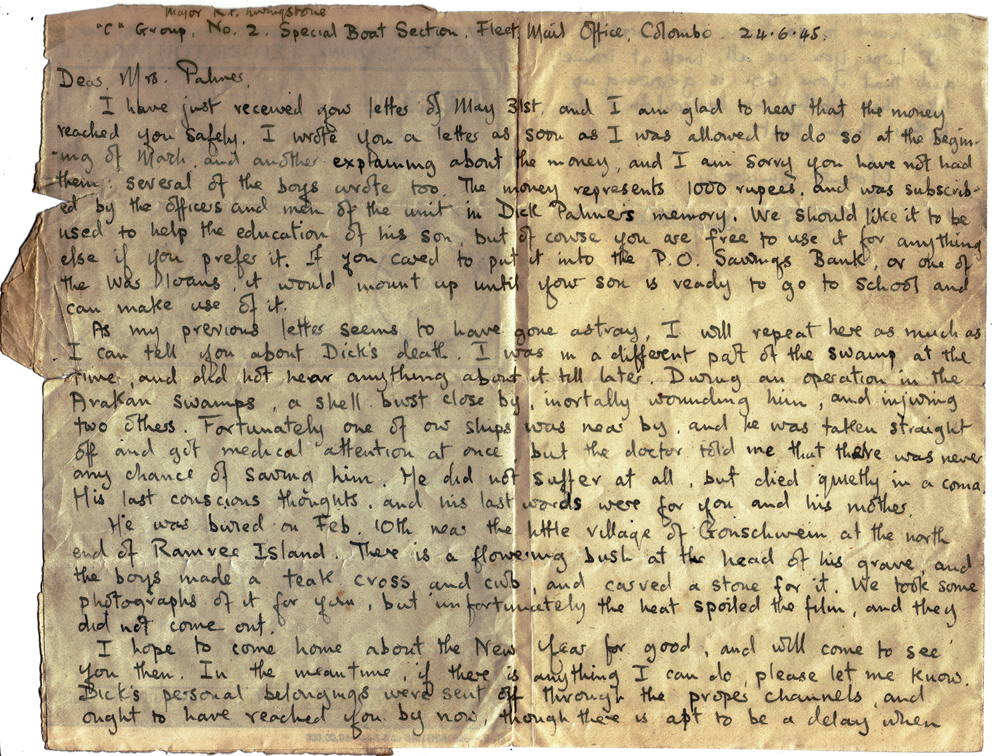 Major R.P. Livingstone
"C" Group, No. 2. Special Boat Section, Fleet Mail Office, Colombo 24.6.45.
Dear Mrs. Palmer,
I have just received your letter of May 31st, and I am glad to hear that the money
reached you safely. I wrote you a letter as soon as I was allowed to do so at the begin-
-ing of March, and another explaining about the money, and I am sorry you have not had
them: several of the boys wrote too. The money represents 1000 rupees, and was subscrib-
ed by the officers and men of the unit in Dick Palmer's memory. We should like it to be
used to help the education of his son, but of course you are free to use it for anything
else if you prefer it. If you cared to put it into the P.O. Savings Bank, or one of
the War Loans, it would mount up until your son is ready to go to school and
can make use of it.
As my previous letter seems to have gone astray, I will repeat here as much as
I can tell you about Dick's death. I was in a different part of the swamp at the
time, and did not hear anything about it till later. During an operation in the
Arakan swamps, a shell burst close by, mortally wounding him, and injuring
two others. Fortunately one of our ships was near by, and he was taken straight
off and got medical attention at once but the doctor told me that there was never
any chance of saving him. He did not suffer at all, but died quietly in a coma.
His last conscious thoughts, and his last words were for you and his mother.
He was buried on Feb. 10th near the little village of Gonschwein at the north
end of Ramree Island. There is a flowering bush at the head of his grave, and
the boys made a teak cross and curb, and carved a stone for it. We took some
photographs of it for you, but unfortunately the heat spoiled the film, and they
did not come out.
I hope to come home about the New Year for good, and will come to see
you then. In the meantime, if there is anything I can do, please let me know.
Dick's personal belongings were sent off through the proper channels, and
ought to have reached you by now, though there is apt to be a delay when